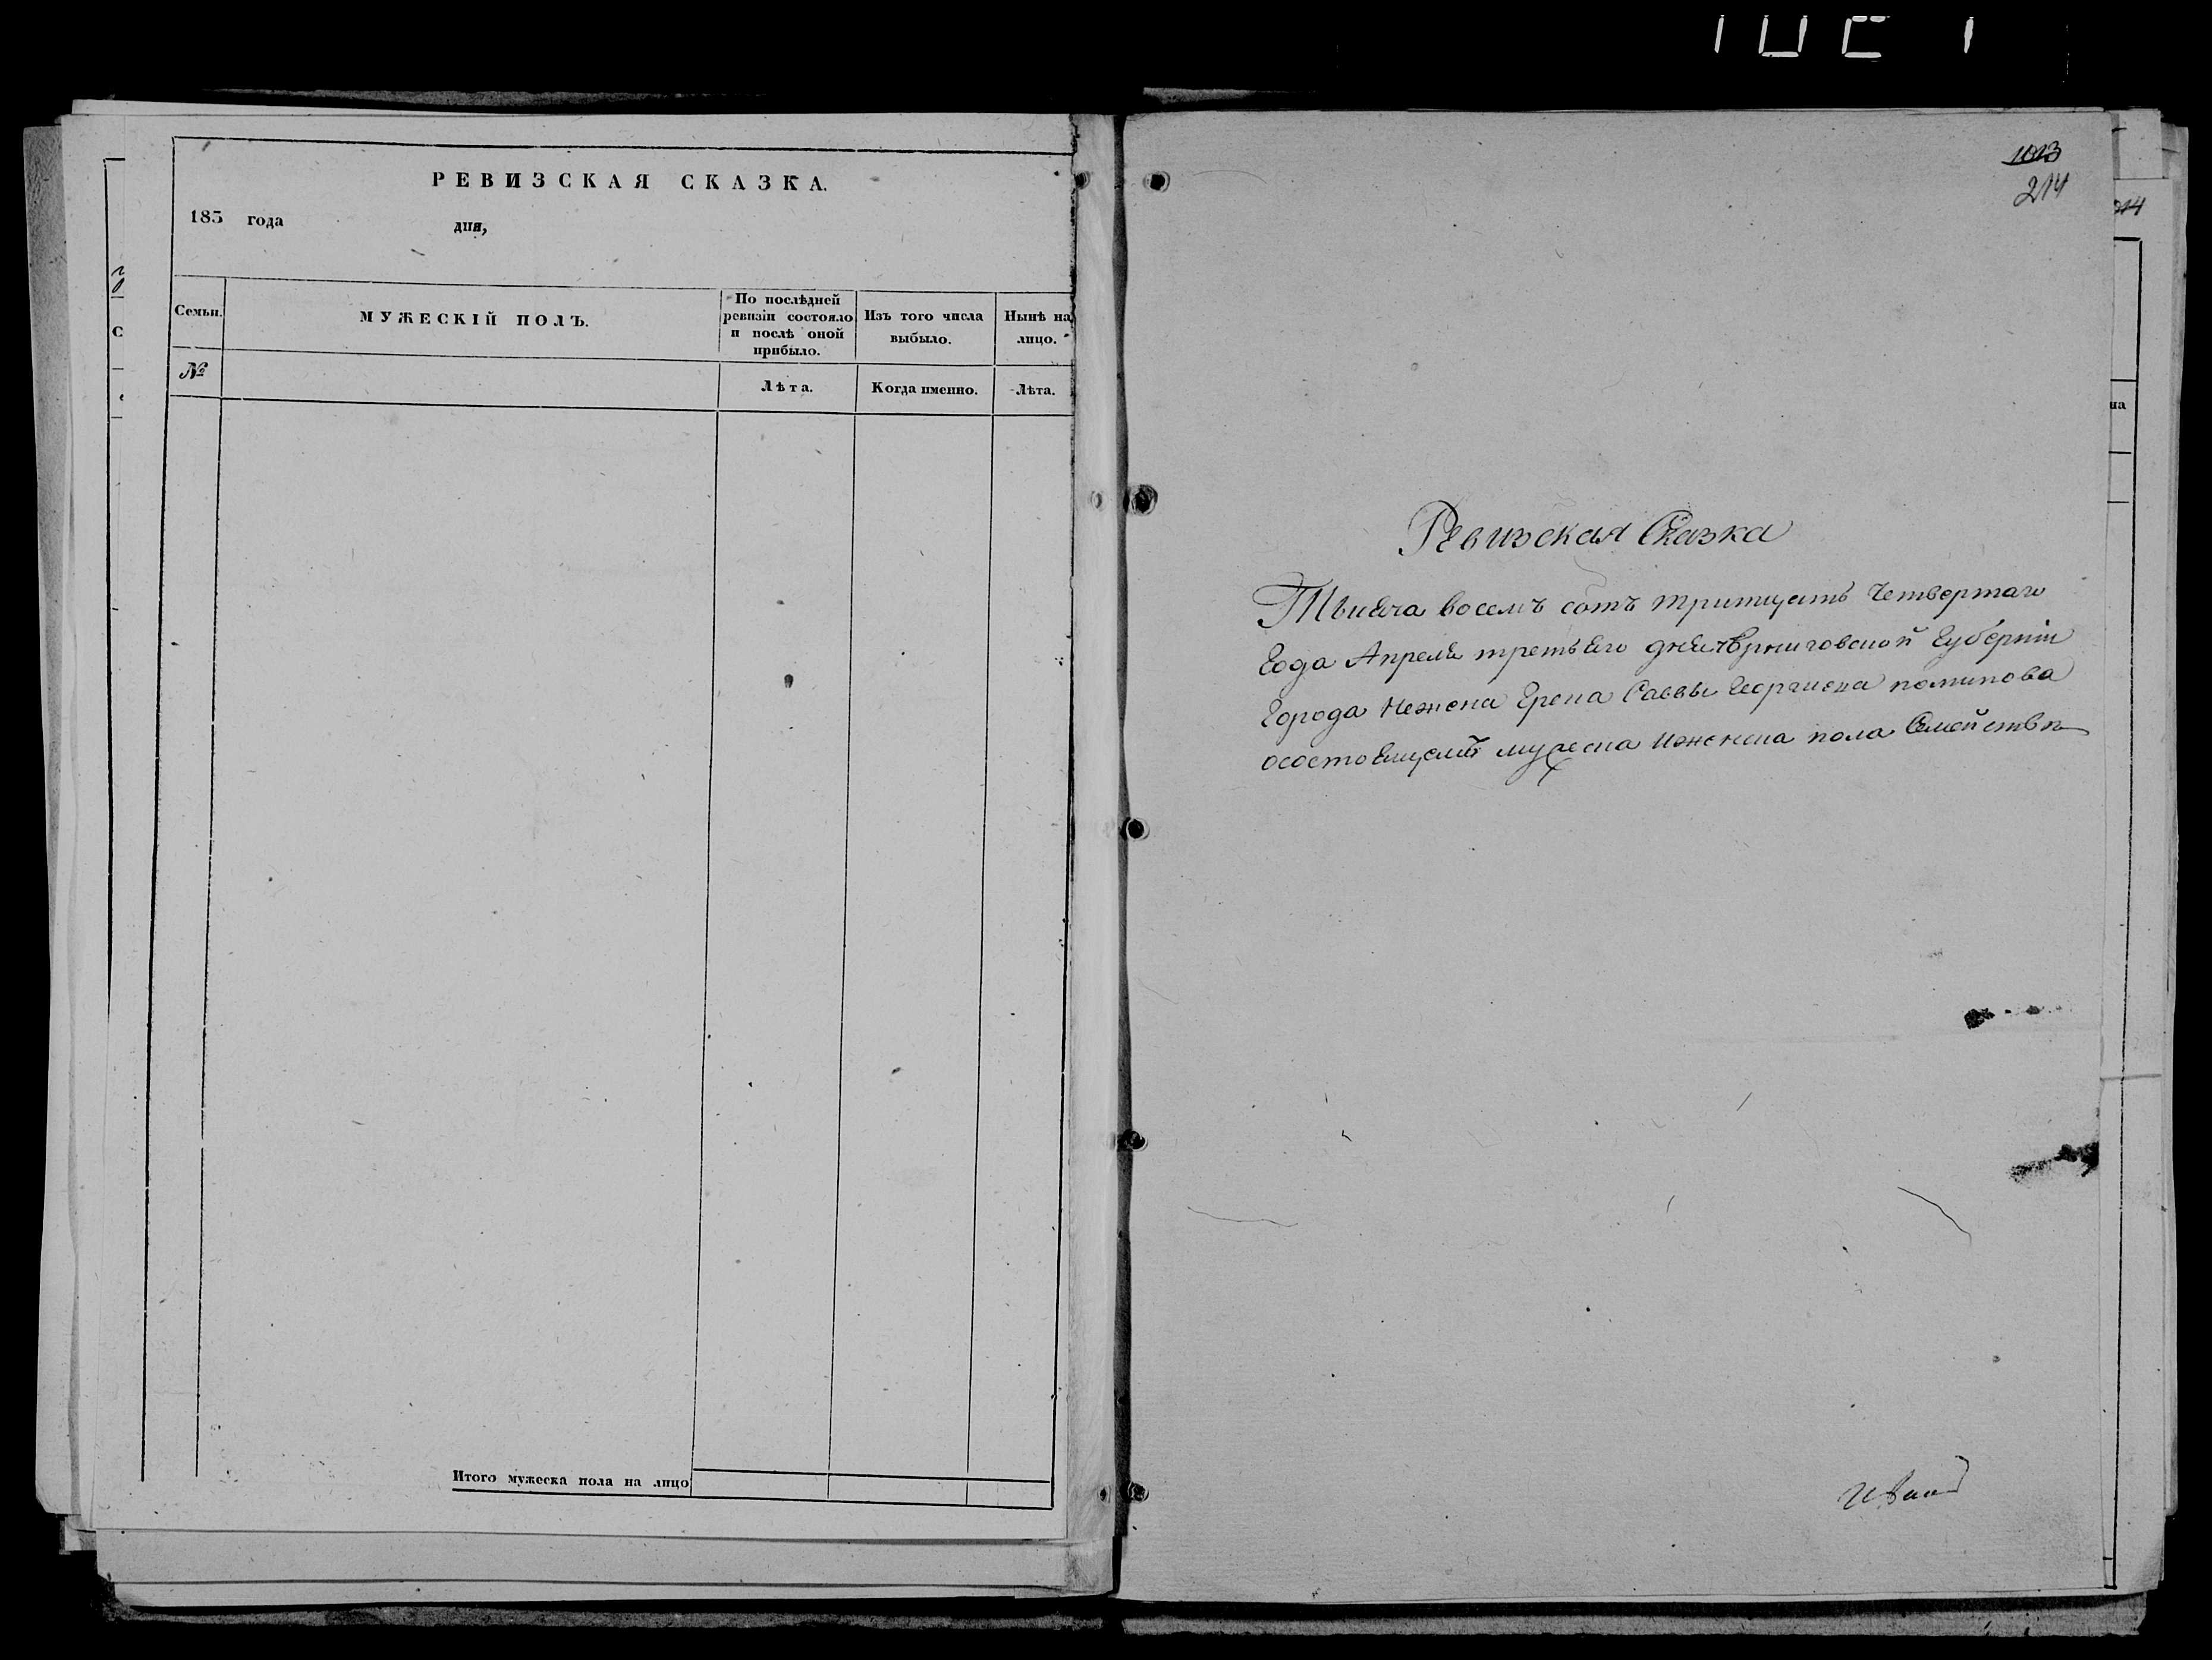 РЕВИЗСКАЯ СКАЗКА.
183 года дня,
Семьи.
МУЖЕСКІЙ ПОЛЪ.
По послѣдней ревизіи состояло и послѣ оной прибыло.
Изъ того числа выбыло.
Нынѣ на лицо.
№
Лѣта.
Когда именно.
Лѣта.
Итого мужеска пола на лицо
1013
214
Ревизская Сказка
Тысяча восемъ сотъ тритцать Четвертаго
Года Апреля третьяго дня Черниговской Губерніи
Города Нежена Грека Саввы Георгиева
осостоящемъ мужеска иженска пола Семействѣ
на